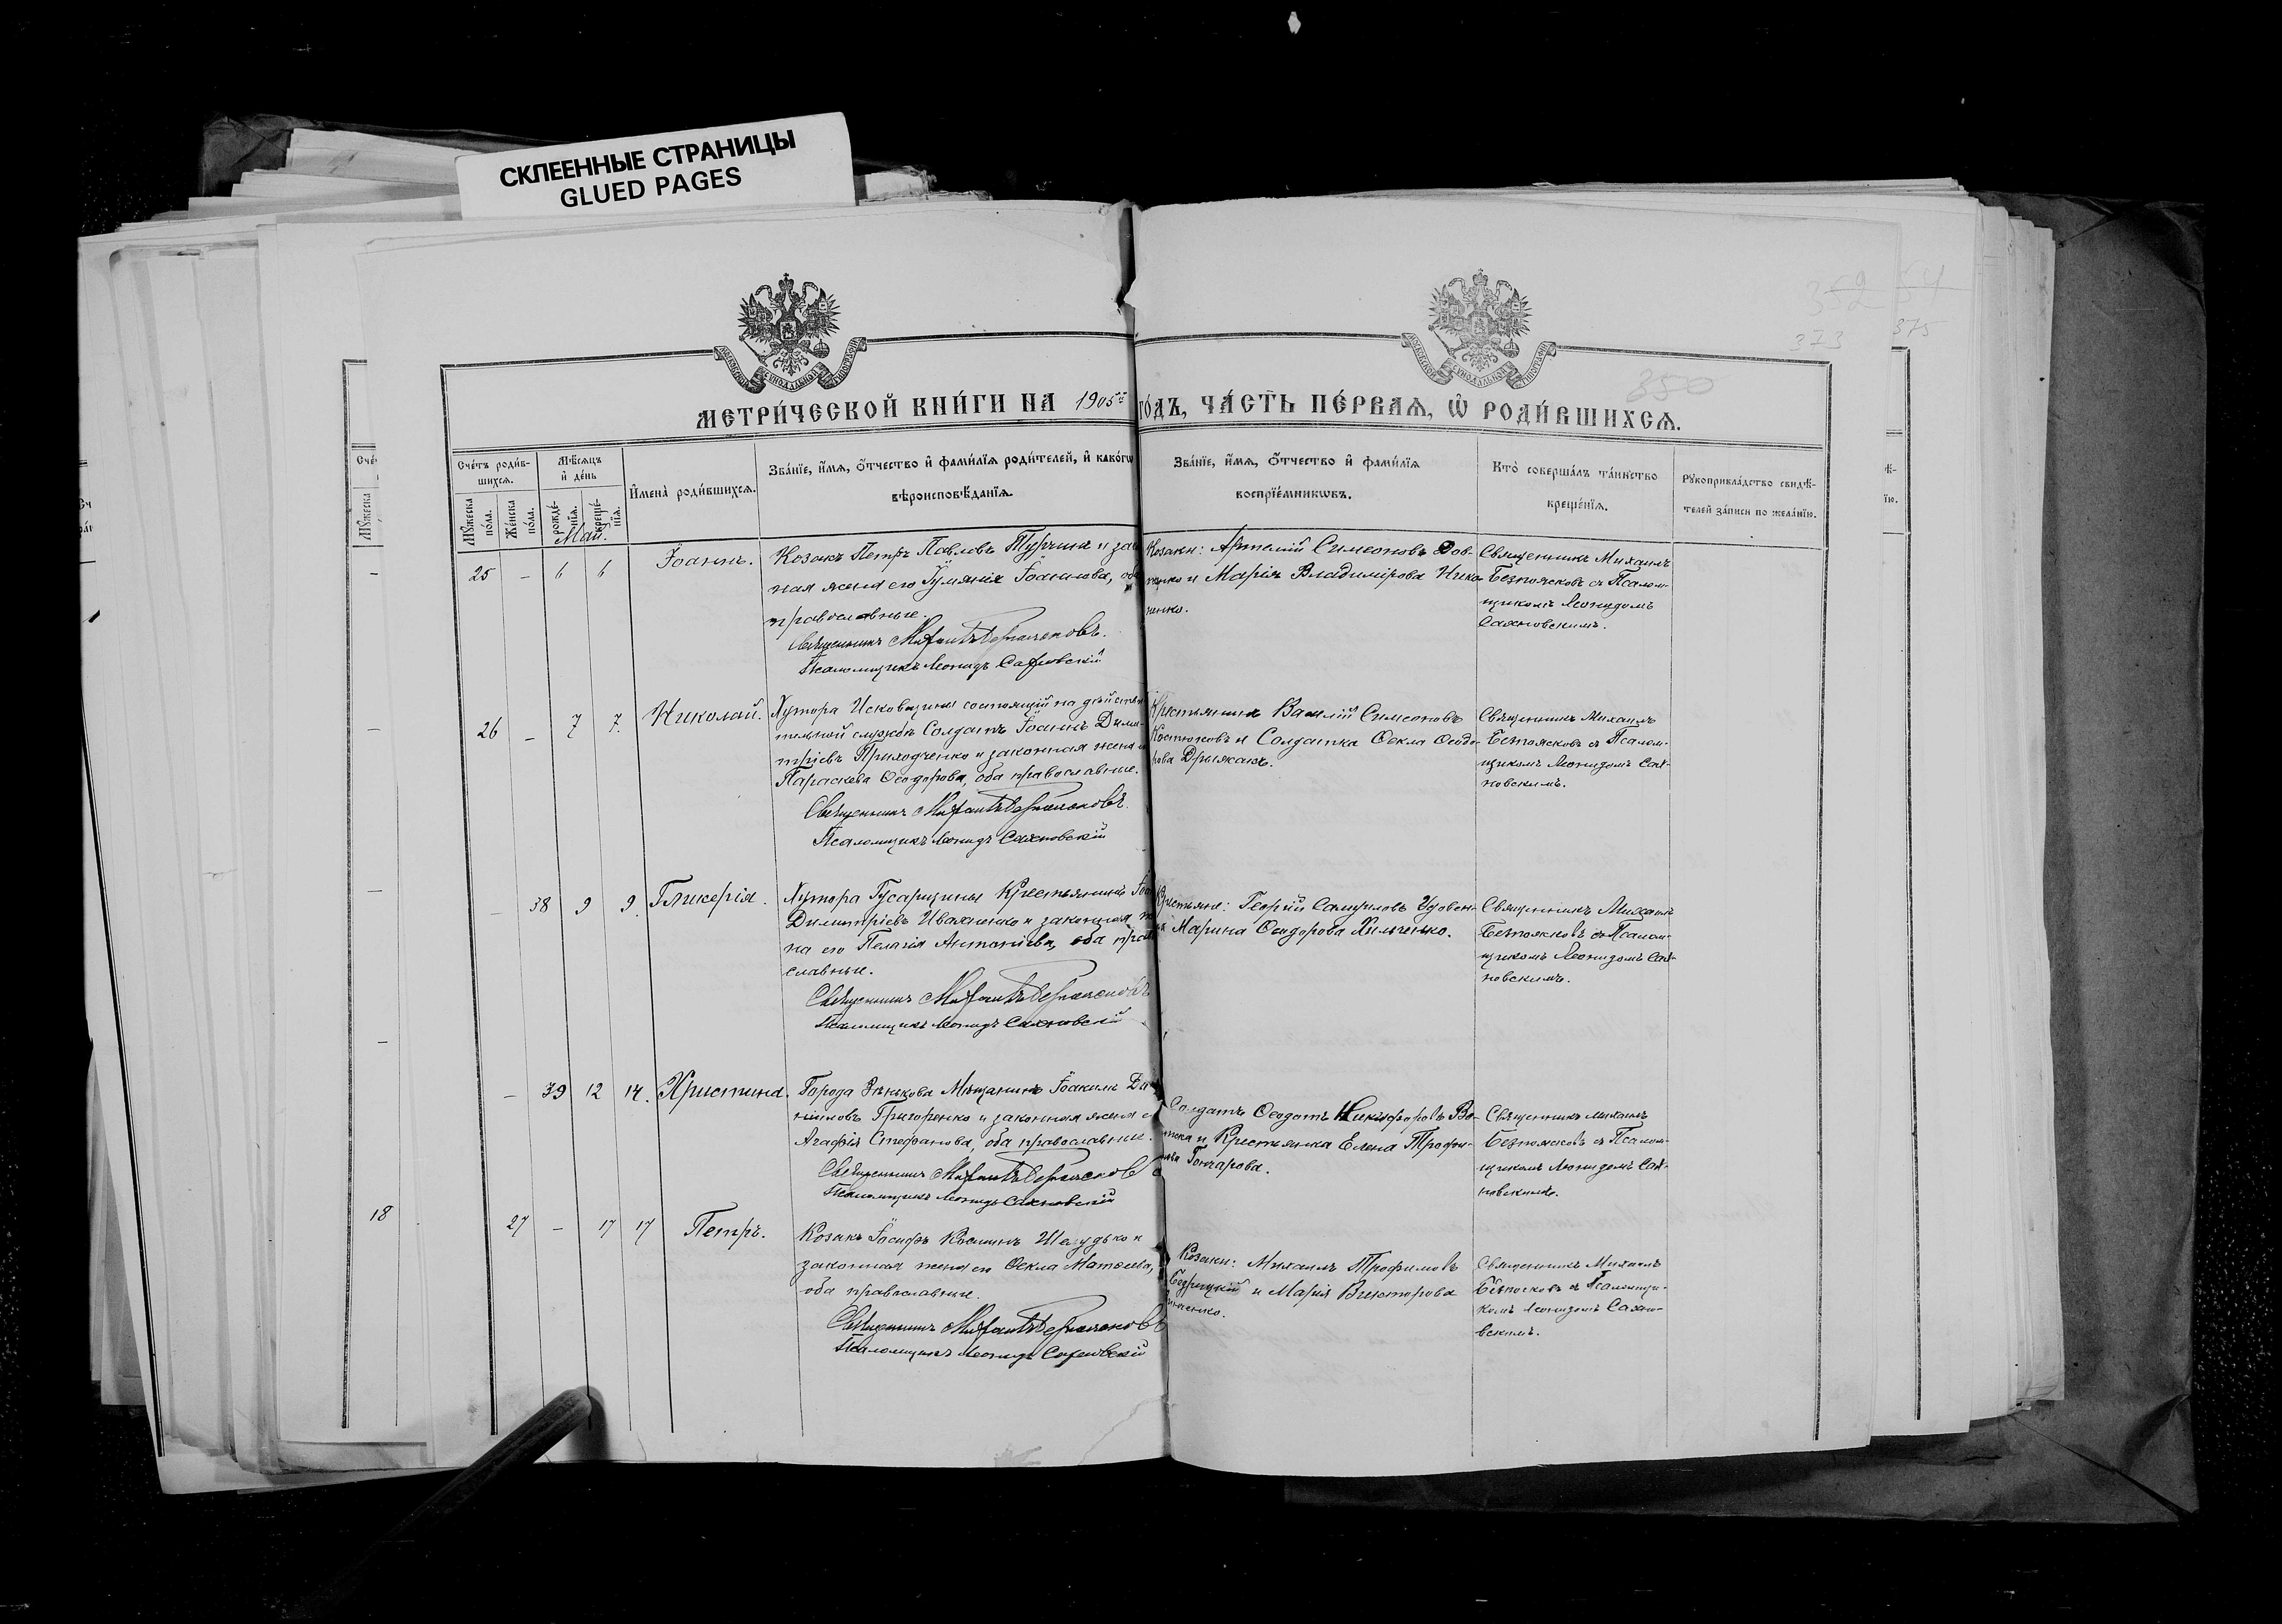 СКЛЕЕННЫЕ СТРАНИЦЫ
GLUED PAGES
МОСКОВСКОЙ СѴНОДАЛЬНОЙ ТИПОГРАФІИ
МОСКОВСКОЙ СѴНОДАЛЬНОЙ ТИПОГРАФІИ
352 51
373 375
350
МЕТРИ́ЧЕСКОЙ КНИ́ГИ НА 1905й ГО́ДЪ, ЧА́СТЬ ПЕ́РВАѦ, Ѡ҆ РОДИ́ВШИХСѦ.
Сче́тъ роди́в-
шихсѧ.
Мꙋ́жеска по́ла.
Же́нска по́ла.
Мѣ́сѧцъ
и҆ де́нь
рожде́-
нїѧ.
креще́-
нїѧ.
И҆мена̀ роди́вшихсѧ.
Зва́нїе, и҆́мѧ, ѻ҆́тчество и҆ фами́лїѧ роди́телей, и҆ како́гѡ
вѣроисповѣ́данїѧ.
Зва́нїе, и҆́мѧ, ѻ҆́тчество и҆ фами́лїѧ
воспрїе́мникѡвъ.
Кто̀ соверша́лъ та́инство
креще́нїѧ.
Рꙋкоприкла́дство свидѣ́-
телей за́писи по жела́нїю.
Май.
25 - 6 6 Іоаннъ.
Козакъ Петръ Павловъ Турчинъ и зак
ная жена его Іоаннова, об
православные.
Священникъ Михаилъ Безпоясковъ.
Псаломщикъ Леонидъ Сахновскій
Козаки: Артемій Симеоновъ Дов-
женко и Марія Владимірова Нико-
ненко.
Священникъ Михаилъ
Безпоясковъ съ Псалом-
щикомъ Леонидомъ
Сахновскимъ.
26 - 7 7. Николай.
Хутора Исковщины состоящій на дѣйстви
тельной службѣ Солдатъ Іоаннъ Дими-
тріевъ Приходченко и законная жена
Параскева Ѳеодорова, оба православные.
Священникъ Михаилъ Безпоясковъ.
Псаломщикъ Леонидъ Сахновскій
Крестьянинъ Василій Симеоновъ
Костюковъ и Солдатка Ѳекла Ѳеодо-
рова Дрыжакъ.
Священникъ Михаилъ
Безпоясковъ съ Псалом-
щикомъ Леонидомъ Сах-
новскимъ.
- 38 9 9. Гликерія.
Хутора Гусарщины Крестьянинъ
Димитріевъ Иваненко и законная
на его Пелагія Антоніева, оба пра
славные.
Священникъ Михаилъ Безпоясковъ
Псаломщикъ Леонидъ Сахновскій
Крестьяне: Георгій Самуиловъ Удовен-
Марина Ѳеодорова Хильченко.
Священникъ Михаилъ
Безпоясковъ съ Псалом-
щикомъ Леонидомъ Сах-
новскимъ.
- 39 12 14. Христина.
Города Зѣнькова Мѣщанинъ Іоакимъ Да
ніиловъ Григоренко и законная жена е
Агафія Стефанова, оба православные.
Священникъ Михаилъ Безпоясков
Псаломщикъ Леонидъ Сахновскій
Солдатъ Ѳеодотъ Никифоровъ
и Крестьянка Елена Трофи-
Гончарова.
Священникъ Михаилъ
Безпоясковъ съ Псалом-
щикомъ Леонидомъ Сах-
новскимъ.
18
27 - 17 17 Петръ.
Козакъ Іосифъ Косминъ и
законная жена его Ѳекла Матѳеева,
оба православные.
Священникъ Михаилъ Безпоясковъ
Псаломщикъ Леонидъ Сахновскій
Козаки: Михаилъ Трофимовъ
и Марія Викторова
Священникъ Михаилъ
Безпоясковъ съ Псаломщи-
комъ Леонидомъ Сахно-
вскимъ.